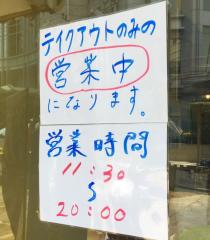 テイクアウトのみの
営業中
になります。
営業時間
11:30
〜
20:00